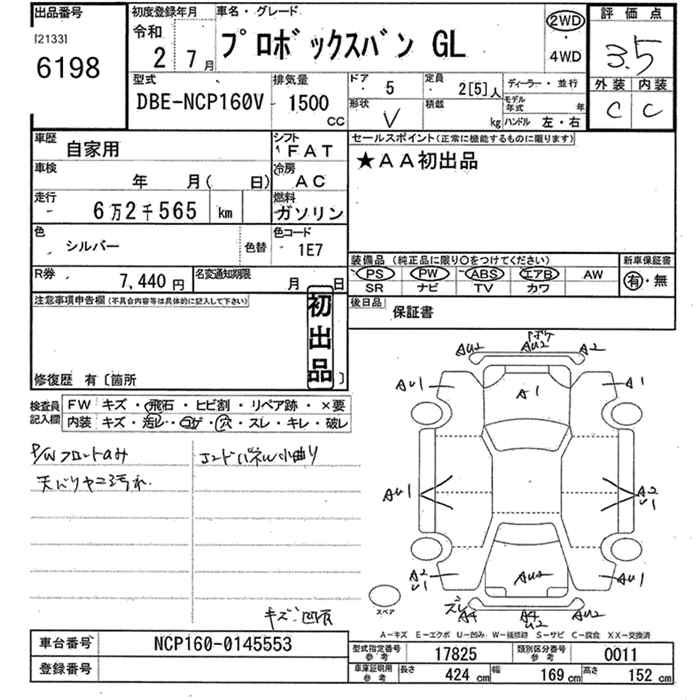 出品番号
[2133]
6198
初度登録年月
令和
2 7月
車名・グレード
プロボックスバン GL
2WD
・
4WD
評価点
3.5
外装 内装
C C
型式
DBE-NCP160V
排気量
1500
CC
ドア
5
定員
2[5]人
ディーラー・並行
形状
V
積載
kg
モデル年式 年
ハンドル 左・右
車歴
自家用
シフト
FAT
車検
年 月( 日)
冷房
AC
走行
6万2千565 km
燃料
ガソリン
色
シルバー
色替
色コード
1E7
R券
7,440 円
名変通知期限
月 日
セールスポイント(正常に機能するものに限ります)
★AA初出品
装備品 (純正品に限り○をつけてください)
PS PW ABS エアB AW
SR ナビ TV カワ
新車保証書
有・無
後日品
保証書
注意事項申告欄(不具合内容等は具体的に記入して下さい)
初出品
修復歴 有〔箇所 〕
検査員記入欄
FW キズ・飛石・ヒビ割・リペア跡・×要
内装 キズ・汚レ・コゲ・穴・スレ・キレ・破レ
P/Wフロントのみ
天バリヤニ汚れ
コンドパネル小曲り
キズ凹有
AU2 AU2 A2
AU1 A1 A1
AU1 A2
U1
A2
U1 AU2 U1
スペア
A4 A4
U2 AU2
A-キズ E-エクボ U-凹み W-補修跡 S-サビ C-腐食 XX-交換済
車台番号
NCP160-0145553
登録番号
型式指定番号参考
17825
類別区分番号参考
0011
車庫証明用参考
長さ 424 cm 幅 169 cm 高さ 152 cm